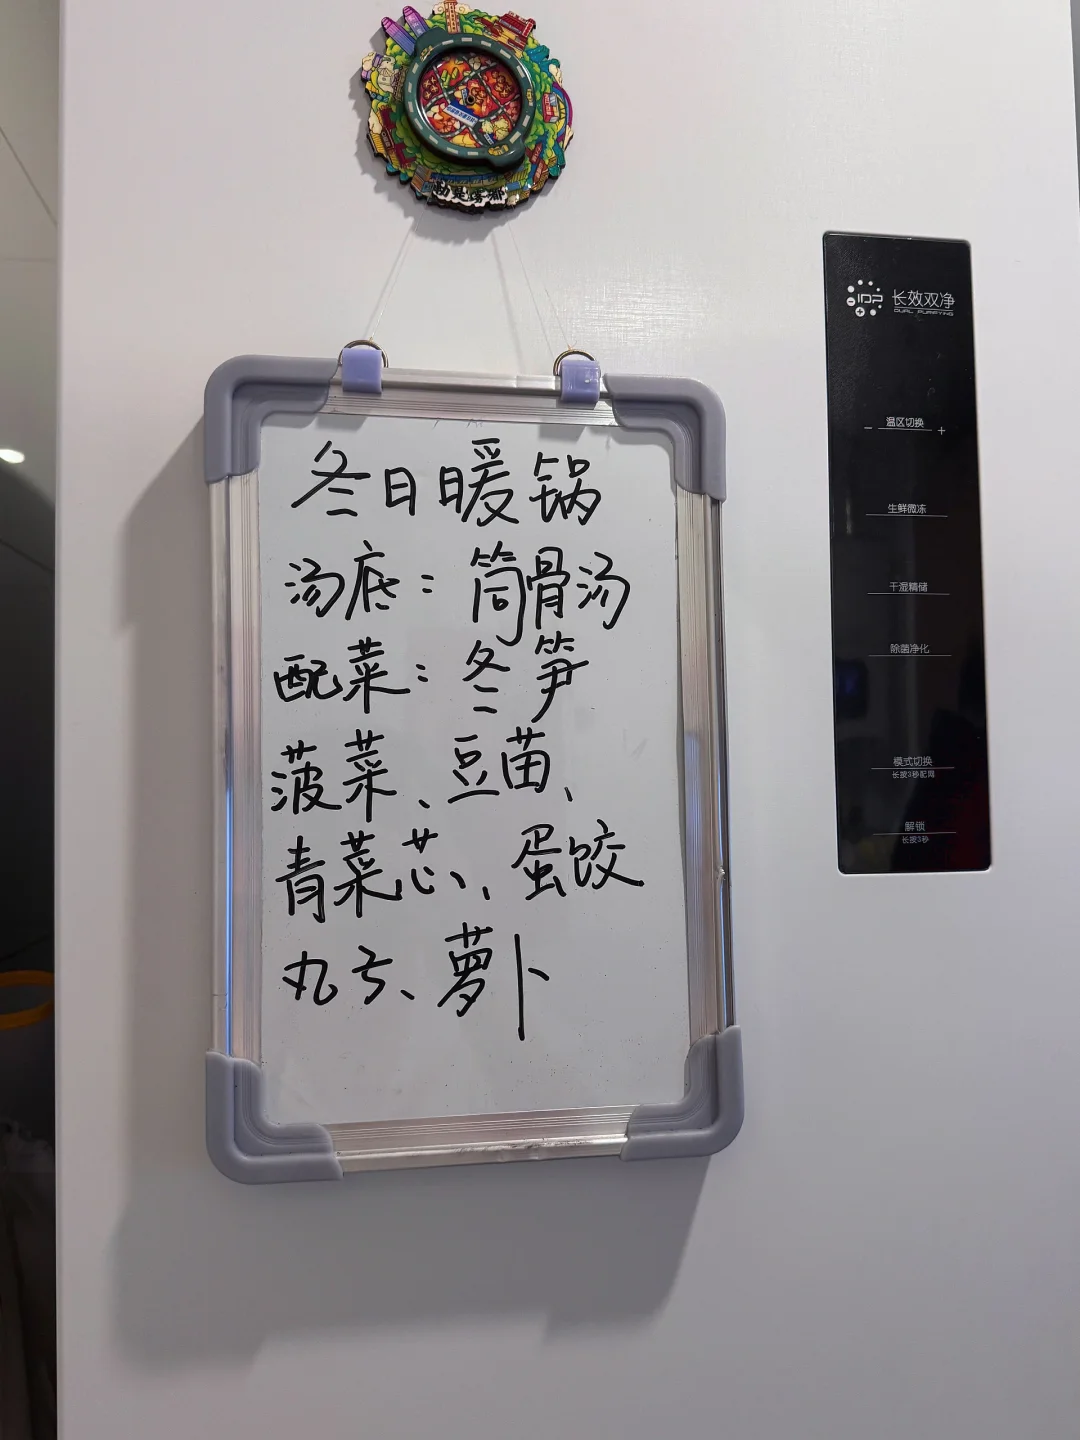 勒是雾都
冬日暖锅
汤底：筒骨汤
配菜：冬笋
菠菜、豆苗、
青菜芯、蛋饺
丸子、萝卜
IDP 长效双净
DUAL PURIFYING
- 温区切换 +
生鲜微冻
干湿精储
除菌净化
模式切换
长按3秒配网
解锁
长按3秒